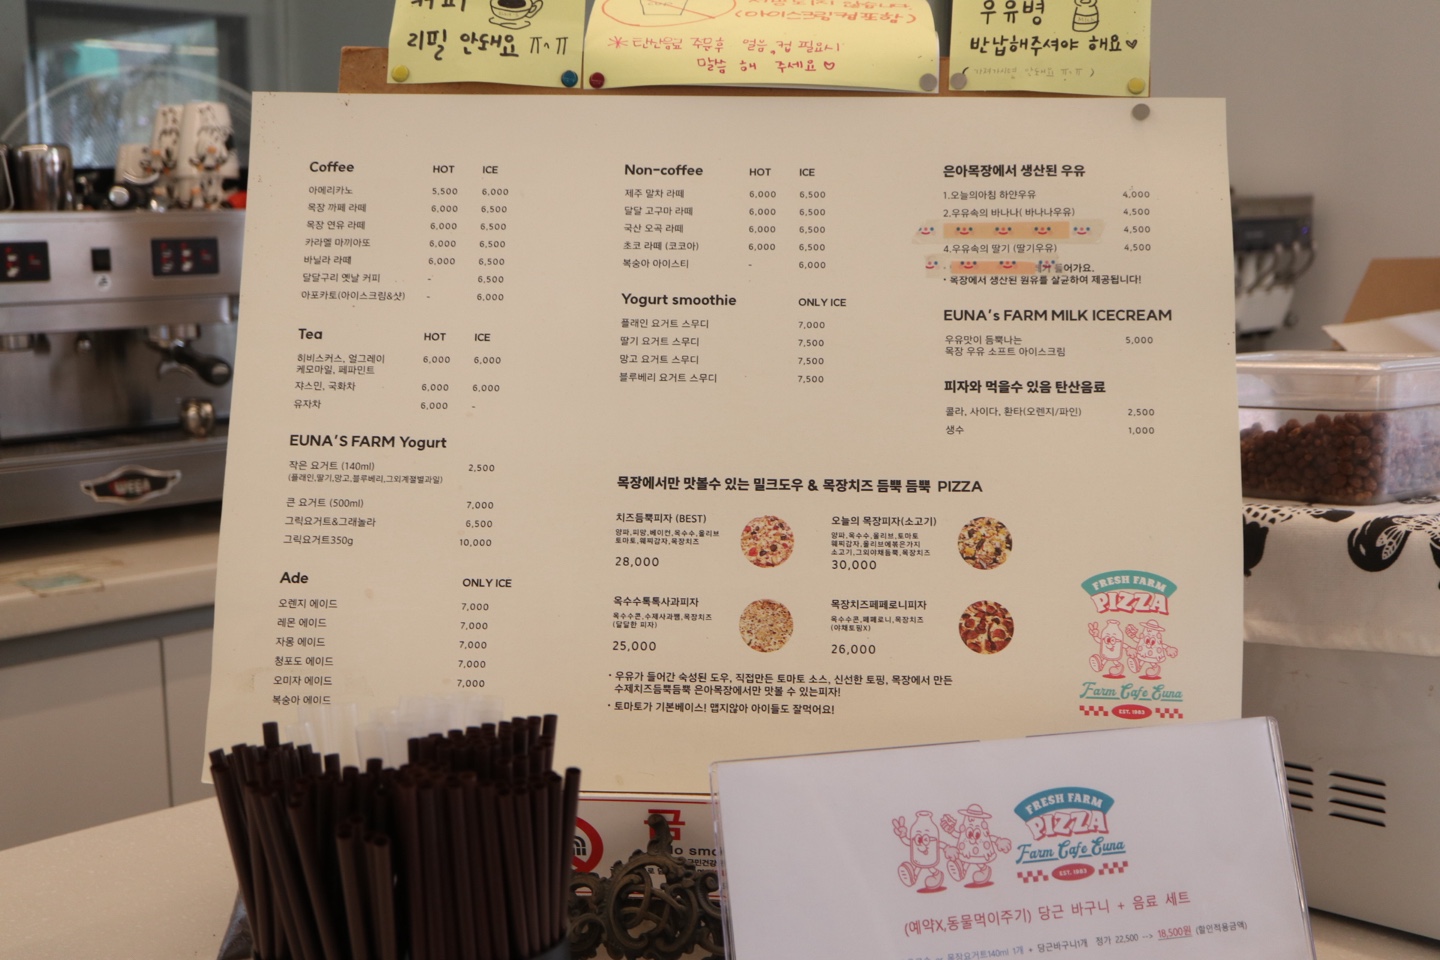 커피
리필 안돼요 ㅠㅅㅠ
※탄산음료 주문후 얼음,컵 필요시
말씀 해 주세요♡
우유병
반납해주셔야 해요♥
Coffee HOT ICE
아메리카노 5,500 6,000
목장 까페 라떼 6,000 6,500
목장 연유 라떼 6,000 6,500
카라멜 마끼아또 6,000 6,500
바닐라 라떼 6,000 6,500
달달구리 옛날 커피 - 6,500
아포카토(아이스크림&샷) - 6,000
Tea HOT ICE
히비스커스, 얼그레이 6,000 6,000
케모마일, 페파민트
쟈스민, 국화차 6,000 6,000
유자차 6,000 -
EUNA'S FARM Yogurt
작은 요거트 (140ml) 2,500
(플래인,딸기,망고,블루베리,그외계절별과일)
큰 요거트 (500ml) 7,000
그릭요거트&그래놀라 6,500
그릭요거트350g 10,000
Ade ONLY ICE
오렌지 에이드 7,000
레몬 에이드 7,000
자몽 에이드 7,000
청포도 에이드 7,000
오미자 에이드 7,000
복숭아 에이드
Non-coffee HOT ICE
제주 말차 라떼 6,000 6,500
달달 고구마 라떼 6,000 6,500
국산 오곡 라떼 6,000 6,500
초코 라떼 (코코아) 6,000 6,500
복숭아 아이스티 - 6,000
Yogurt smoothie ONLY ICE
플래인 요거트 스무디 7,000
딸기 요거트 스무디 7,500
망고 요거트 스무디 7,500
블루베리 요거트 스무디 7,500
은아목장에서 생산된 우유
1.오늘의아침 하얀우유 4,000
2.우유속의 바나나( 바나나우유) 4,500
4,500
4.우유속의 딸기 (딸기우유) 4,500
들어가요.
· 목장에서 생산된 원유를 살균하여 제공됩니다!
EUNA's FARM MILK ICECREAM
우유맛이 듬뿍나는 5,000
목장 우유 소프트 아이스크림
피자와 먹을수 있음 탄산음료
콜라, 사이다, 환타(오렌지/파인) 2,500
생수 1,000
목장에서만 맛볼수 있는 밀크도우 & 목장치즈 듬뿍 듬뿍 PIZZA
치즈듬뿍피자 (BEST)
양파,피망,베이컨,옥수수,올리브
토마토,웨찌감자,목장치즈
28,000
오늘의 목장피자(소고기)
양파,옥수수,올리브,토마토
웨찌감자,올리브에볶은가지
소고기,그외야채듬뿍,목장치즈
30,000
옥수수톡톡사과피자
옥수수콘,수제사과쨈,목장치즈
(달달한 피자)
25,000
목장치즈페페로니피자
옥수수콘,페페로니,목장치즈
(야채토핑X)
26,000
· 우유가 들어간 숙성된 도우, 직접만든 토마토 소스, 신선한 토핑, 목장에서 만든
수제치즈듬뿍듬뿍 은아목장에서만 맛볼 수 있는피자!
· 토마토가 기본베이스! 맵지않아 아이들도 잘먹어요!
FRESH FARM
PIZZA
Farm Cafe Euna
EST. 1983
금
No smo
FRESH FARM
PIZZA
Farm Cafe Euna
EST. 1983
(예약X,동물먹이주기) 당근 바구니 + 음료 세트
목장요거트140ml 1개 + 당근바구니1개 정가 22,500 --> 18,500원 (할인적용금액)